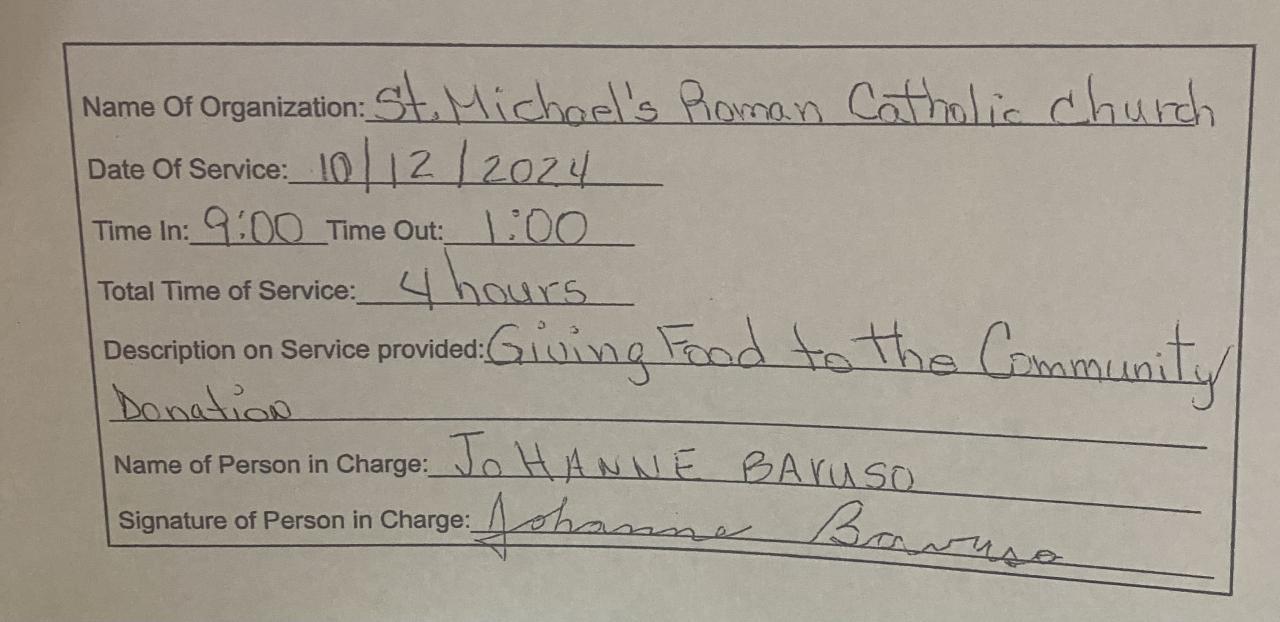 Name Of Organization: St. Michael's Roman Catholic Church
Date Of Service: 10/12/2024
Time In: 9:00 Time Out: 1:00
Total Time of Service: 4 hours
Description on Service provided: Giving Food to the Community
Donation
Name of Person in Charge: JOHANNE BAVUSO
Signature of Person in Charge: Johanne Bavuso